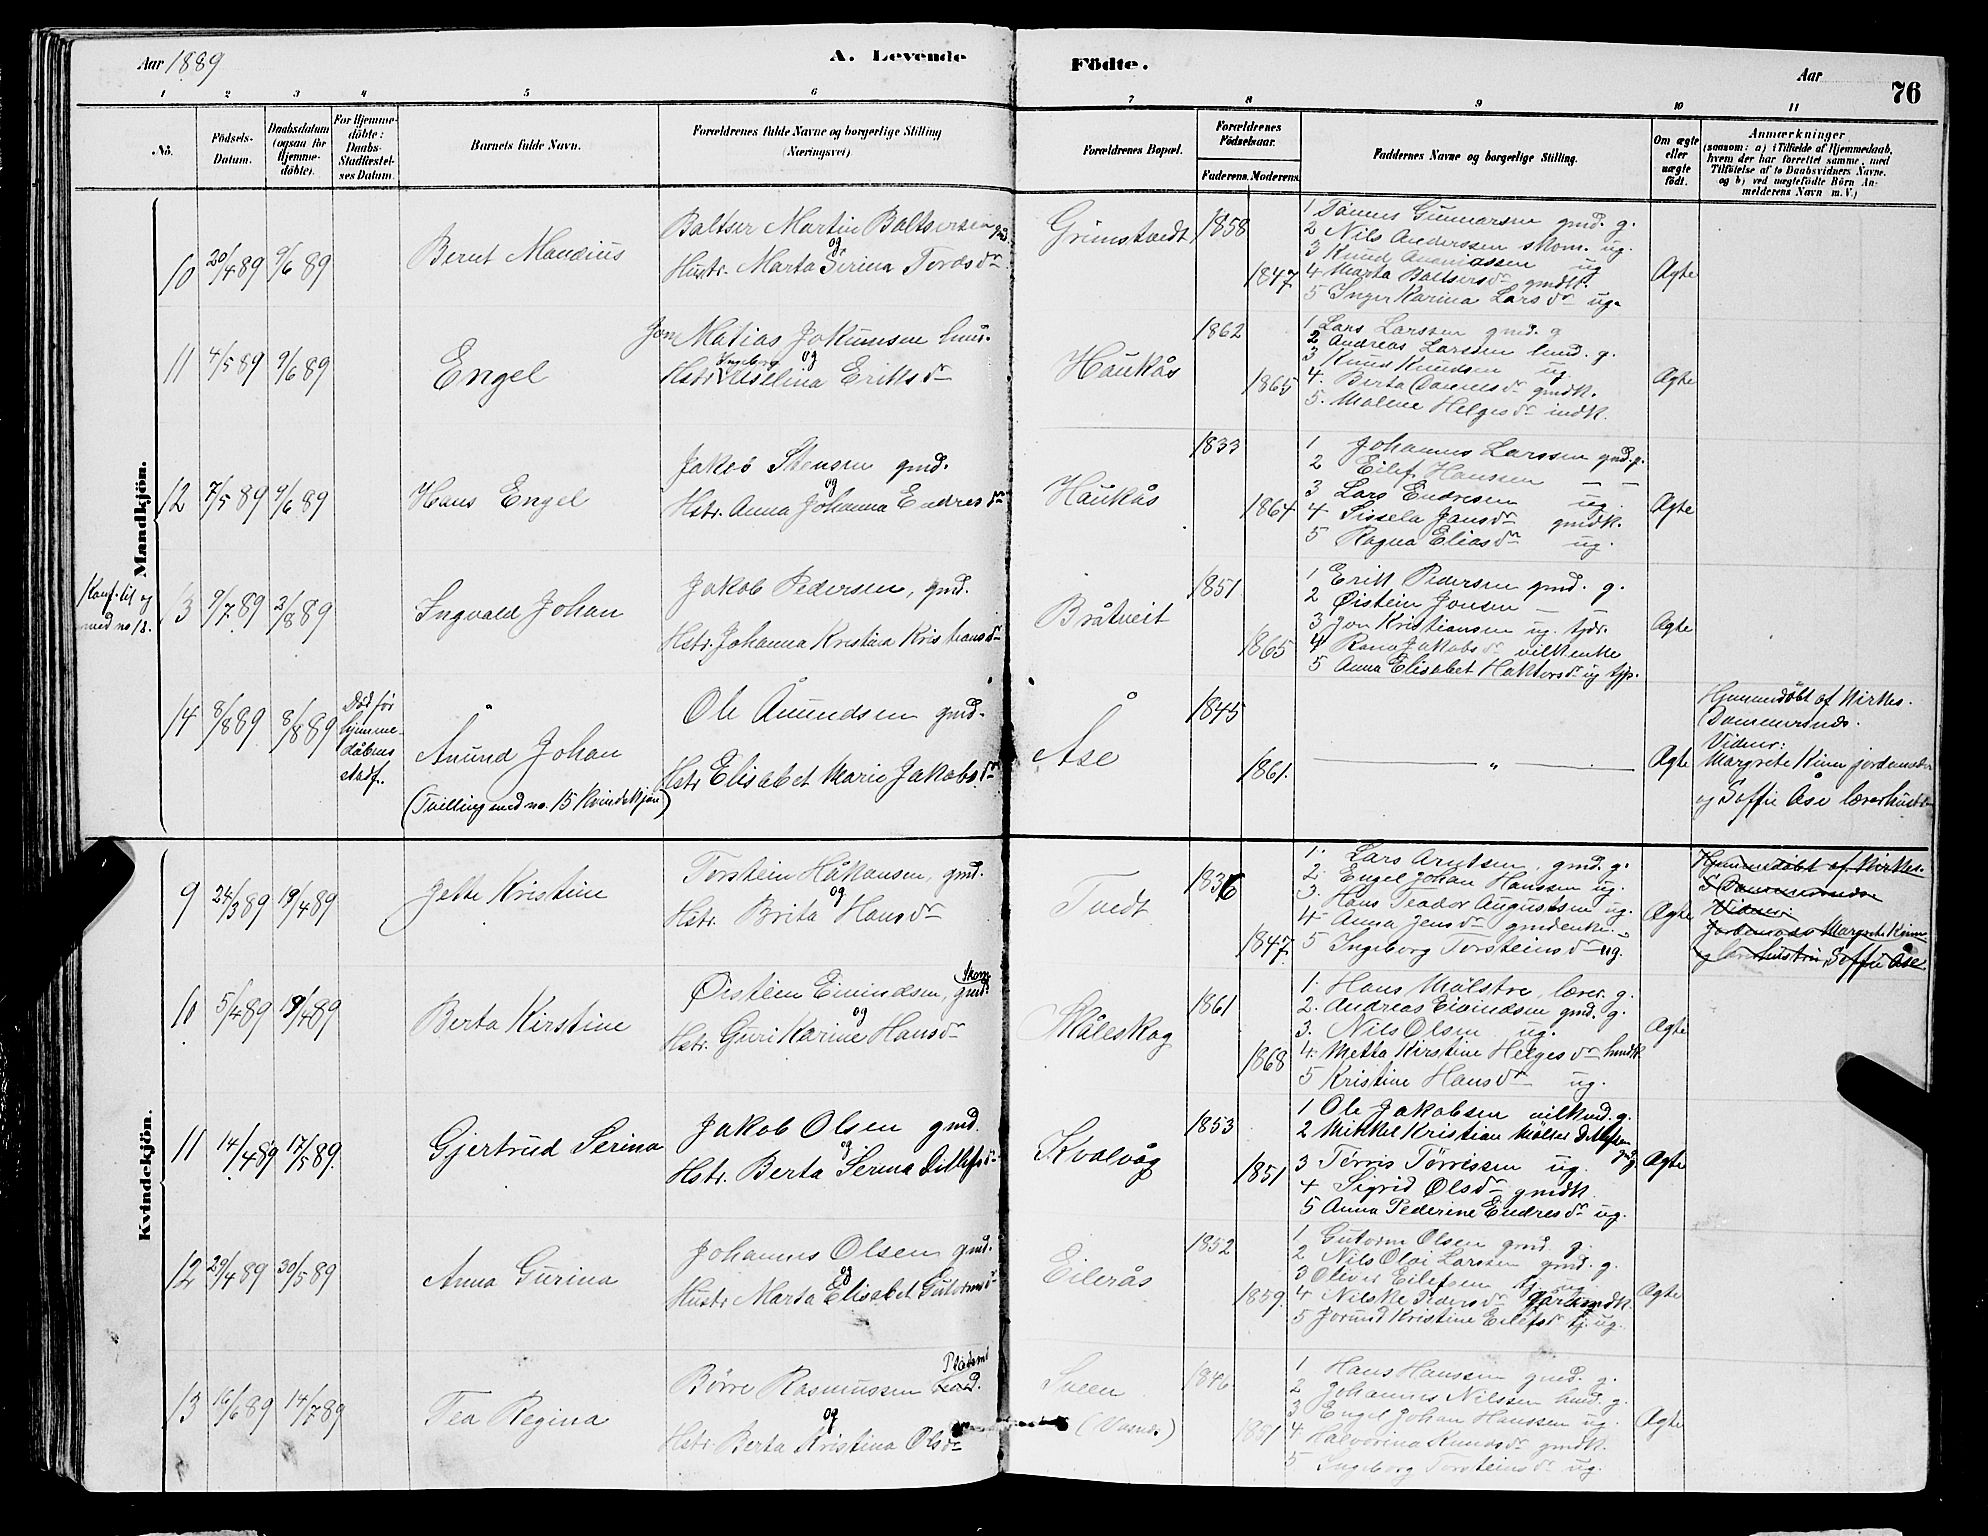 Aar 1889
A. Levende
Födte.
Aar
76
1 2 3 4 5 6 7 8 9 10 11
No.
Födsels-
Datum.
Daabsdatum
(ogsaa for
Hjemme-
döbte).
For Hjemme-
döbte:
Daabs-
Stadfæstel-
ses Datum.
Barnets fulde Navn.
Forældrenes fulde Navne og borgerlige Stilling
(Næringsvei)
Forældrenes Bopæl.
Forældrenes
Födselsaar.
Faderens. Moderens.
Faddernes Navne og borgerlige Stilling.
Om ægte
eller
uægte
födt.
Anmærkninger
(saasom: a) i Tilfælde af Hjemmedaab,
hvem der har forrettet samme, med
Tilföielse af to Daabsvidners Navne.
og b) ved uægtefödte Börn An-
melderens Navn m.V.)
Mandkjön.
10 20/4 89 9/6 89
Bernt Mandius
Baltser Martin Baltsersen gmd.
og
Hustr. Marta Serina Tordsdr
Grimstvedt
1858
1847
1 Tönnes Gunnarsen gmd. g.
2 Nils Anderssen skom. ug.
3 Knud Ananiassen ug
4 Marta Baltsersdr gmdk.
5 Inger Karina Larsdr ug.
Ægte
11 4/5 89 9/6 89
Engel
Jon Matias Jokumsen hus.
Ingeborg og
Hstr. Uselina Eriksdr
Haukås
1862
1865
1 Lars Larssen gmd. g
2 Andreas Larssen hmd. g.
3 Knud Knudsen ug.
4. Berta Danielsdr gmdk.
5. Malene Helgesdr indk.
Ægte
12 7/5 89 9/6 89
Hans Engel
Jakob Stensen gmd.
og
Hstr. Anna Johanna Endresdr
Haukås
1833
1864
1 Johannes Larssen gmd. g.
2 Eilef Hanssen — —
3 Lars Endresen ug.
4 Sissela Jansdr gmdk.
5 Ragna Eliasdr ug.
Ægte
Konf. til og
med no 13.
13 9/7 89 3/8 89
Ingvald Johan
Jakob Pedersen, gmd.
Hstr. Johanna Kristina Kristiansdr
Bråtveit
1851
1865
1 Erik Pedersen gmd. g.
2 Øistein Jonsen —
3 Jon Kristiansen ug. tjdr.
4 Rana Jakobsdr vilkenke
5 Anna Elisabet Haktorsdr ug tjp.
Ægte
14 8/8 89 8/8 89
Död för
hjemme-
dåbens
stadf.
Åmund Johan
(Tvilling med no. 15 kvindekjön)
Ole Åmundsen gmd.
Hstr Elisabet Marie Jakobsdr
Åse
1845
1861.
— „ —
Ægte
Hjemmedöbt af Kirkes.
Dannevands.
Vidner:
Margrete Kinn jordemoder
og Soffie Åse lærerhustru
Kvindekjön.
9 24/3 89 19/4 89
Jette Kristine
Torstein Håkonsen, gmd.
og
Hstr. Brita Hansdr
Tvedt
1836
1847
1. Lars Arntsen, gmd. g.
2. Engel Johan Hanssen ug.
3. Hans Teador Augustsen ug.
4 Anna Jensdr gmdenke
5 Ingeborg Torsteinsdr ug.
Ægte
Hjemmedöbt af Kirkes.
Vidner:
Jordemoder Margrete Kinn
og lærerhustru, Soffie Åse
10 5/4 89 19/4 89
Berta Kirstine
Øistein Eivindsen, gmd. skom
og
Hstr. Guri Karine Hansdr
Måleskog
1861
1868
1. Hans Mölstre, lærer. g.
2. Andreas Eivindsen gmd. g.
3. Nils Olsen ug.
4. Metta Kirstine Helgesdr hmdk
5 Kristine Hansdr ug.
Ægte
11 14/4 89 17/5 89.
Gjertrud Serina
Jakob Olsen gmd.
og
Hstr. Berta Serina Ditlefsdr
Kvalvåg
1853
1851
1 Ole Jakobsen vilkmd. g.
2 Mikkel Kristian Möller Ditlefsen gmd g
3 Törris Törrissen ug.
4 Sigrid Olsdr gmdk.
5 Anna Pederine Endresdr ug.
Ægte
12 29/4 89 30/5 89
Anna Gurina
Johannes Olsen gmd.
og
Hustr. Marta Elisabet Gutormsdr
Eilerås
1852
1859.
1 Gutorm Olsen gmd. g.
2 Nils Olai Larssen gmd. g.
3 Oliver Eilefsen tj. ug.
4 Nilske Pedersdr gmdk.
5 Jorund Kristine Eilefsdr tj. ug.
Ægte
13 16/6 89 14/7 89
Tea Regina
Börre Rasmussen Pladsmd
og
Hstr. Berta Kristina Olsdr
Sveen
1846
1851
1 Hans Hanssen gmd. g.
2 Johannes Nilssen hmd. g.
3 Engel Johan Hanssen ug.
4 Halvorina Knudsdr gmdk.
5 Ingeborg Torsteinsdr ug.
Ægte